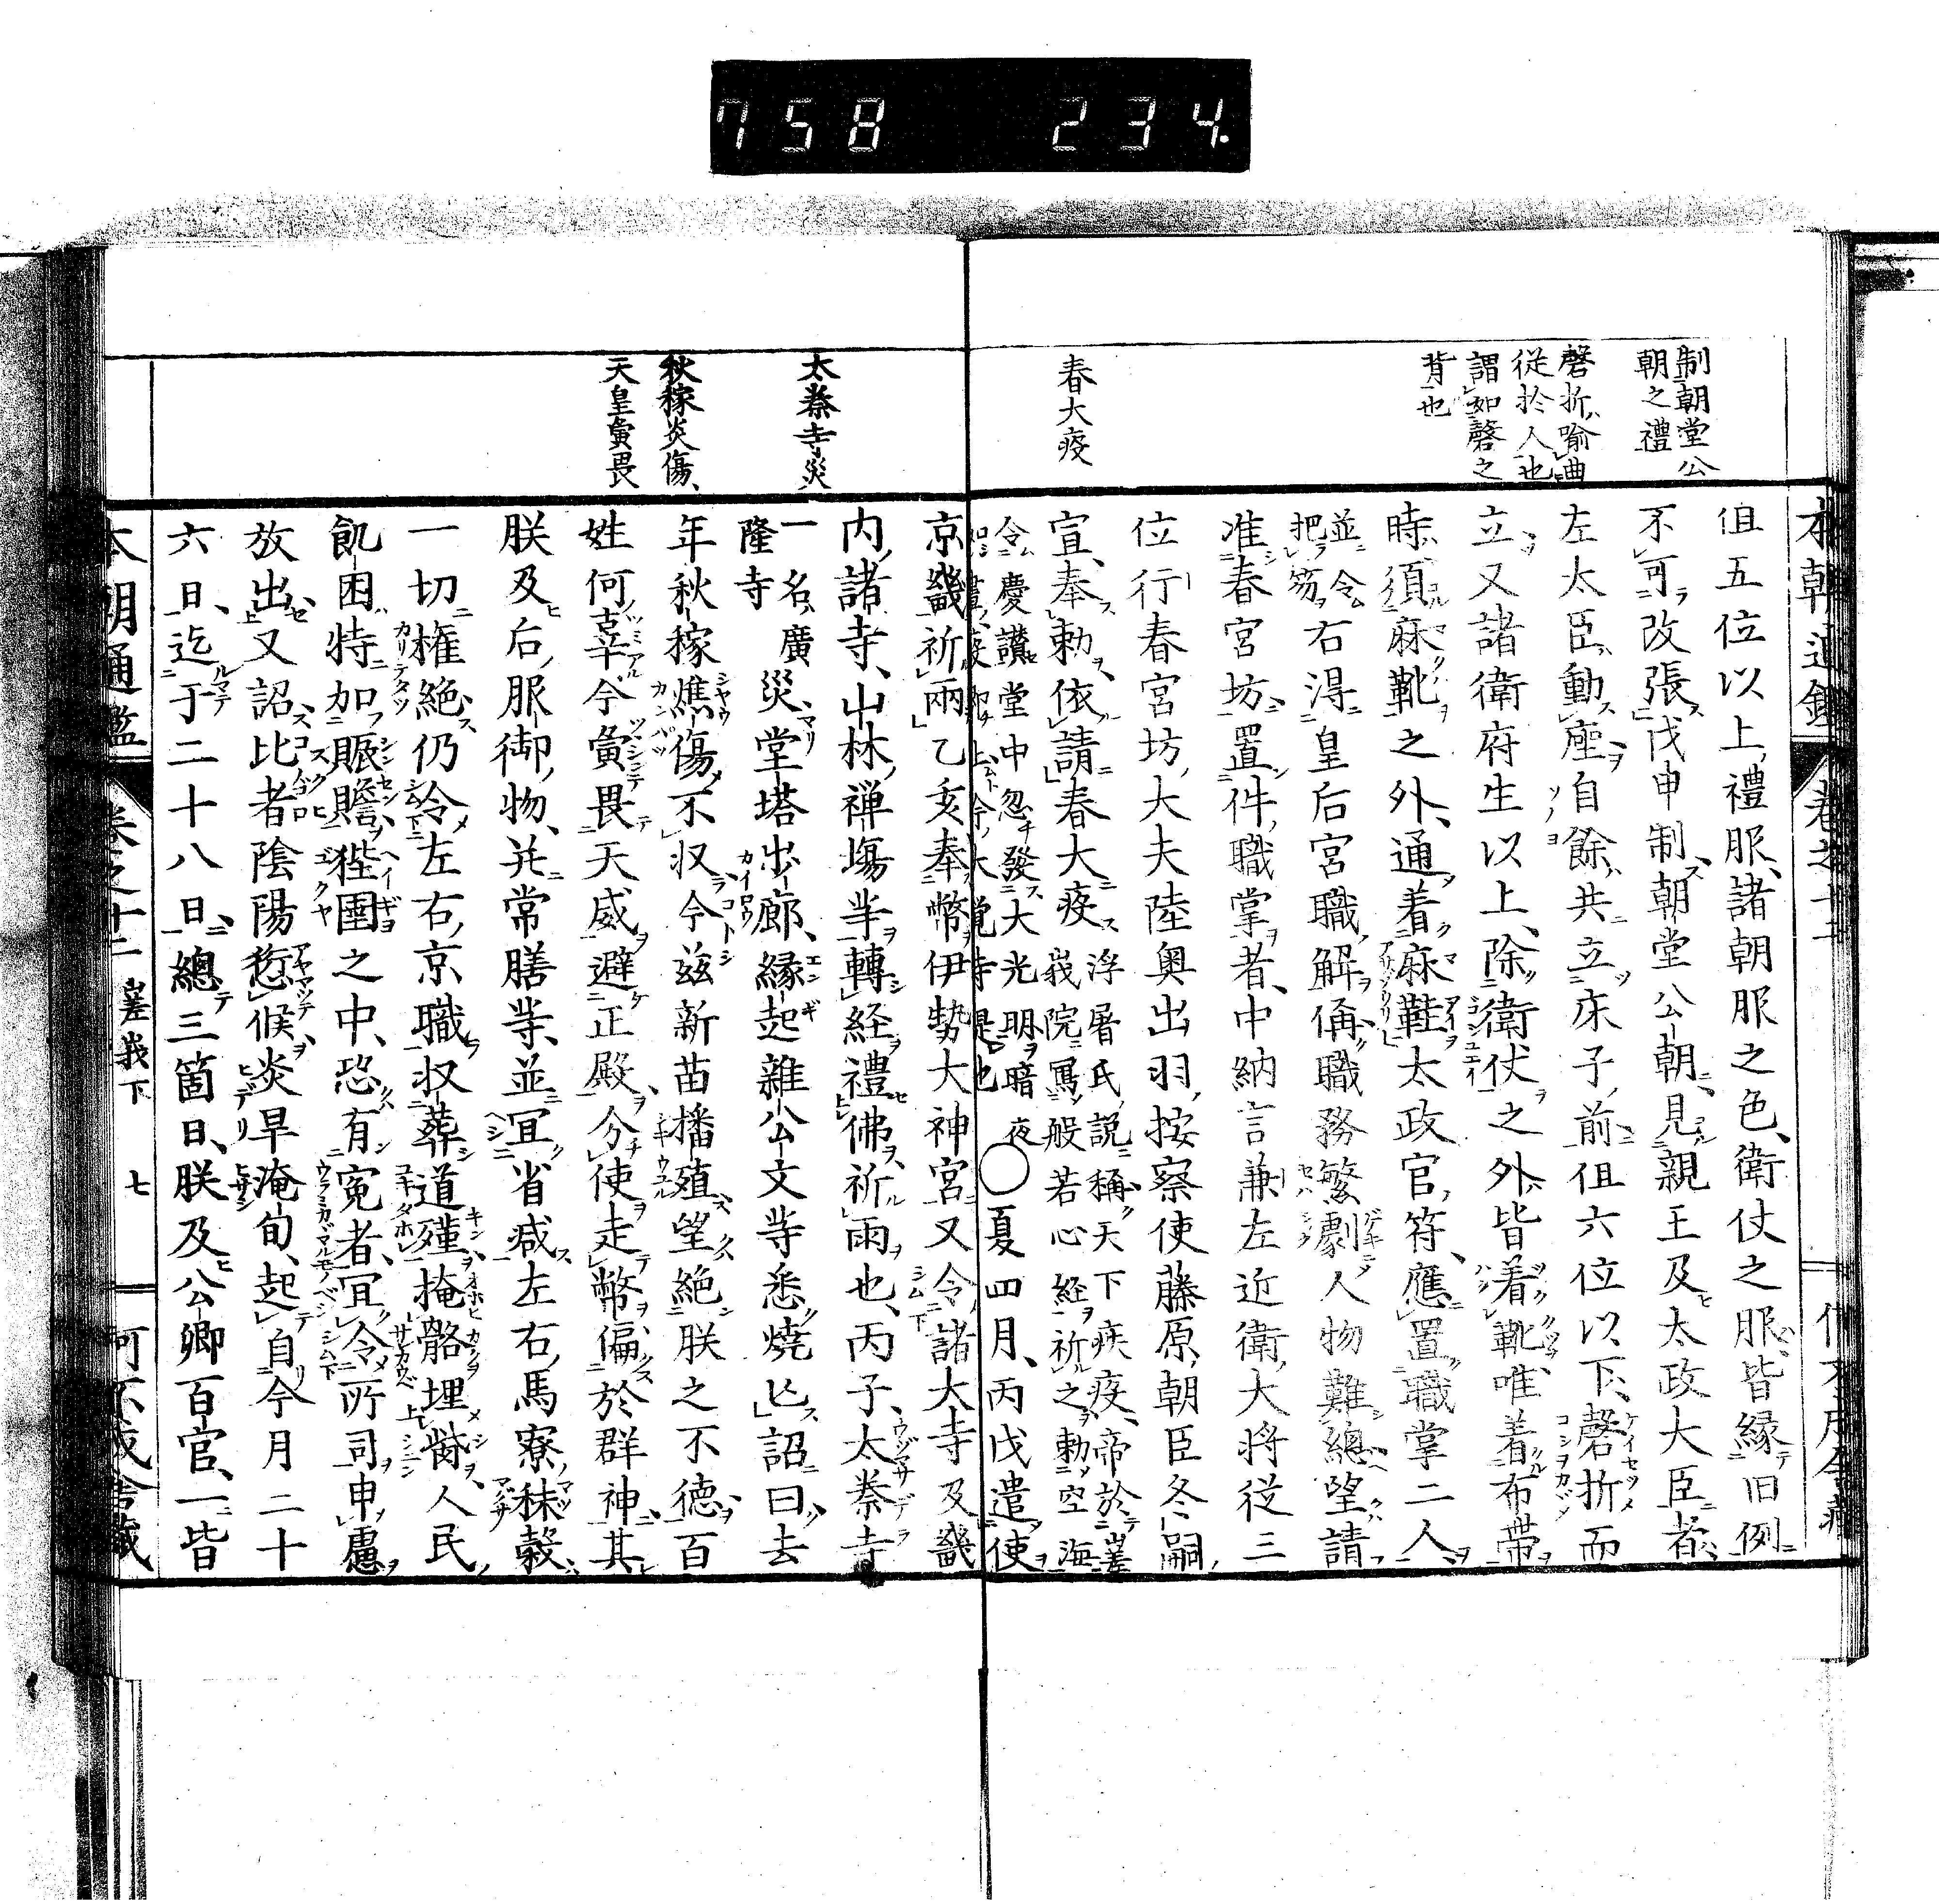 758 234.
制朝堂公
朝之禮
磬折喻曲
從於人也
謂如磬之
背也
春大疫
但五位以上禮服諸朝服之色衛仗之服皆緣旧例
不可改張戊申制朝堂公朝見親王及太政大臣者
左大臣動座自餘共立床子前但六位以下磬折而
立又諸衛府生以上除衛仗之外皆着靴唯着布帶
時須麻靴之外通着麻鞋太政官符應置職掌二人
並令
把笏
右得皇后宮職解偁職務繁劇人物難總望請
准春宮坊置件職掌者中納言兼左近衛大將從三
位行春宮坊大夫陸奧出羽按察使藤原朝臣冬嗣
宣奉勅依請春大疫
浮屠氏說稱天下疾疫帝於嵯
峩院寫般若心經祈之勅空海
令慶讃堂中忽發大光明暗夜
如晝疫即止今大覺寺是也
○夏四月丙戌遣使
京畿祈雨乙亥奉幣伊勢大神宮又令諸大寺及畿
內諸寺山林禅場等轉経禮佛祈雨也丙子太秦寺
一名廣
隆寺
災堂塔出廊緣起雜公文等悉燒亡詔曰去
年秋稼燋傷不収今茲新苗播殖望絕朕之不德百
姓何辜今夤畏天威避正殿分使走幣偏於群神其
朕及后服御物并常膳等並宜省减左右馬寮秣穀
一切權絕仍令左右京職収葬道殣掩骼埋胔人民
飢困特加賑贍狴圄之中恐有寃者宜令所司申慮
放出又詔比者陰陽愆候炎旱淹旬起自今月二十
六日迄于二十八日總三箇日朕及公卿百官一皆
太秦寺災
秋稼炎傷
天皇夤畏
本朝通鑑 卷之十二 嵯峩下 七